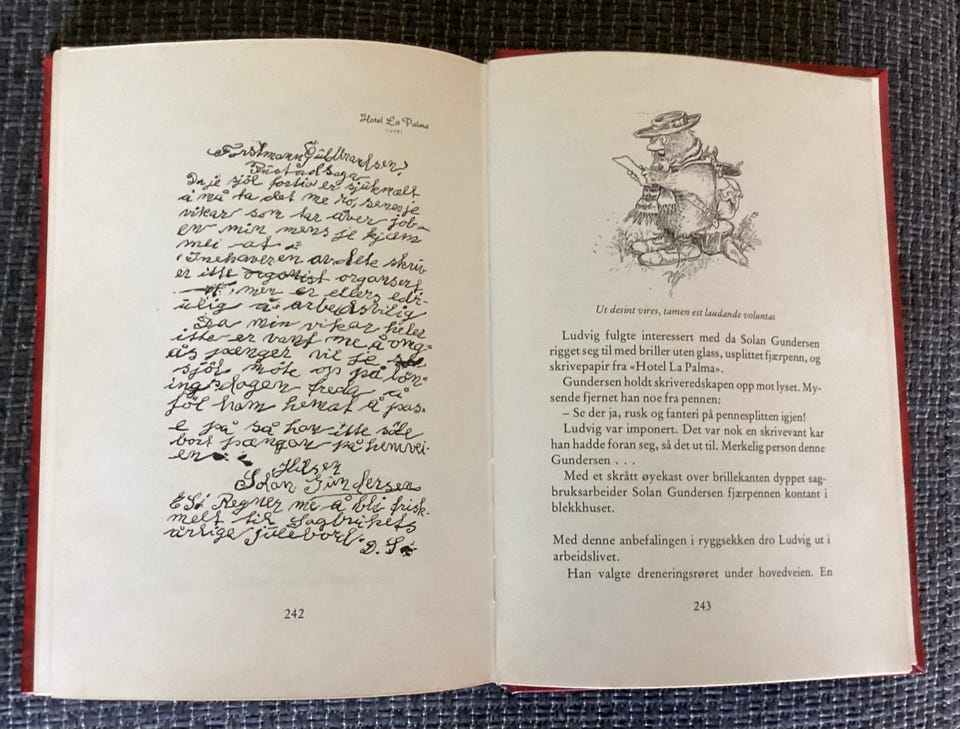 Hotel La Palma
CAPRI
Forstmann Gulbrandsen,
Bustadsaga
Da je sjöl fortiv er sjukmelt
å må ta det me ro, sener je
vikar som tar åver job-
en min mens je kjem
mei at
Inehaveren av dete skriv
er itte organist organsert
men er ellers edr-
ulig å arbedsvilig
Da min vikar heler
itte er vant me å omg-
ås pænger vil je
sjöl möte op på lön-
ingsdagen freda å
föl ham hemat å pas-
e på så han itte söle
bort pængan på hemvei-
en
Hilsen
Solan Gundersen
E S: Regner me å bli frisk-
melt til Sagbrukets
årlige julebord. D. S.
242
Ut desint vires, tamen est laudande voluntas
Ludvig fulgte interessert med da Solan Gundersen
rigget seg til med briller uten glass, usplittet fjærpenn, og
skrivepapir fra «Hotel La Palma».
Gundersen holdt skriveredskapen opp mot lyset. My-
sende fjernet han noe fra pennen:
– Se der ja, rusk og fanteri på pennesplitten igjen!
Ludvig var imponert. Det var nok en skrivevant kar
han hadde foran seg, så det ut til. Merkelig person denne
Gundersen . . .
Med et skrått øyekast over brillekanten dyppet sag-
bruksarbeider Solan Gundersen fjærpennen kontant i
blekkhuset.
Med denne anbefalingen i ryggsekken dro Ludvig ut i
arbeidslivet.
Han valgte dreneringsrøret under hovedveien. En
243